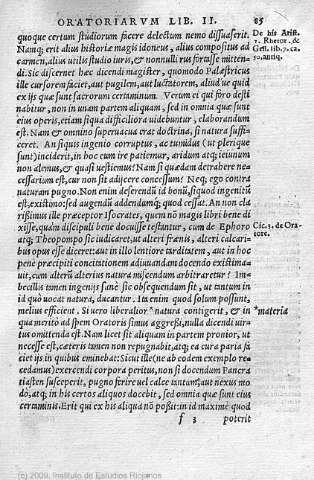 ORATORIARVM LIB. II. 85
quoque certum studiorum facere delectum nemo dissuaserit.
Namq; erit alius historiæ magis idoneus, alius compositus ad
carmen, alius utilis studio iuris, & nonnulli rus fortasse mitten-
di. Sic discernet hæc dicendi magister, quomodo Palæstricus
ille cursorem faciet, aut pugilem, aut luctatorem, aliud ue quid
ex ijs quæ sunt sacrorum certaminum. Verum ei qui foro desti
nabitur, non in unam partem aliquam, sed in omnia quæ sunt
eius operis, etiam siqua difficiliora uidebuntur, elaborandum
est. Nam & omnino superuacua erat doctrina, si natura suffi-
ceret. An siquis ingenio corruptus, ac tumidus (ut plerique
sunt) inciderit, in hoc eum ire patiemur, aridum atq; ieiunum
non alemus, & quasi uestiemus? Nam si quædam detrahere ne-
cessarium est, cur non sit adijcere concessum? Neq; ego contra
naturam pugno. Non enim deserendū id bonū, siquod ingenitū
est, existimo: sed augendū addendumq; quod cessat. An non cla
rissimus ille præceptor Isocrates, quem nō magis libri bene di
xisse, quàm discipuli bene docuisse testantur, cum de Ephoro
atq; Theopompo sic iudicaret, ut alteri frænis, alteri calcari-
bus opus esse diceret: aut in illo leniore tarditatem, aut in hoc
pene præcipiti concitationem adiuuandam docendo existima-
uit, cum alterū alterius natura miscendum arbitraretur? Im-
becillis tamen ingenijs sanè sic obsequendum sit, ut tantum in
id quò uocat natura, ducantur. Ita enim quod solum possunt,
melius efficient. Si uero liberalior *natura contigerit, & in
qua meritò ad spem Oratoris simus aggressi, nulla dicendi uir-
tus omittenda est. Nam licet sit aliquam in partem pronior, ut
necesse est, cæteris tamen non repugnabit, atq; ea cura paria fa
ciet ijs in quibus eminebat: Sicut ille (ne ab eodem exemplo re
cedamus) exercendi corpora peritus, non si docendum Pancra
tiasten susceperit, pugno ferire uel calce tantum, aut nexus mo
do, atq; in his certos aliquos docebit, sed omnia quæ sunt eius
certaminis. Erit qui ex his aliqua nō poßit: in id maximè quod
f 3 poterit
De his Arist.
7. Rhetor. &
Gell. lib. 7. ca.
Cic. 3. de Ora-
tore.
*materia
(c) 2009, Instituto de Estudios Riojanos